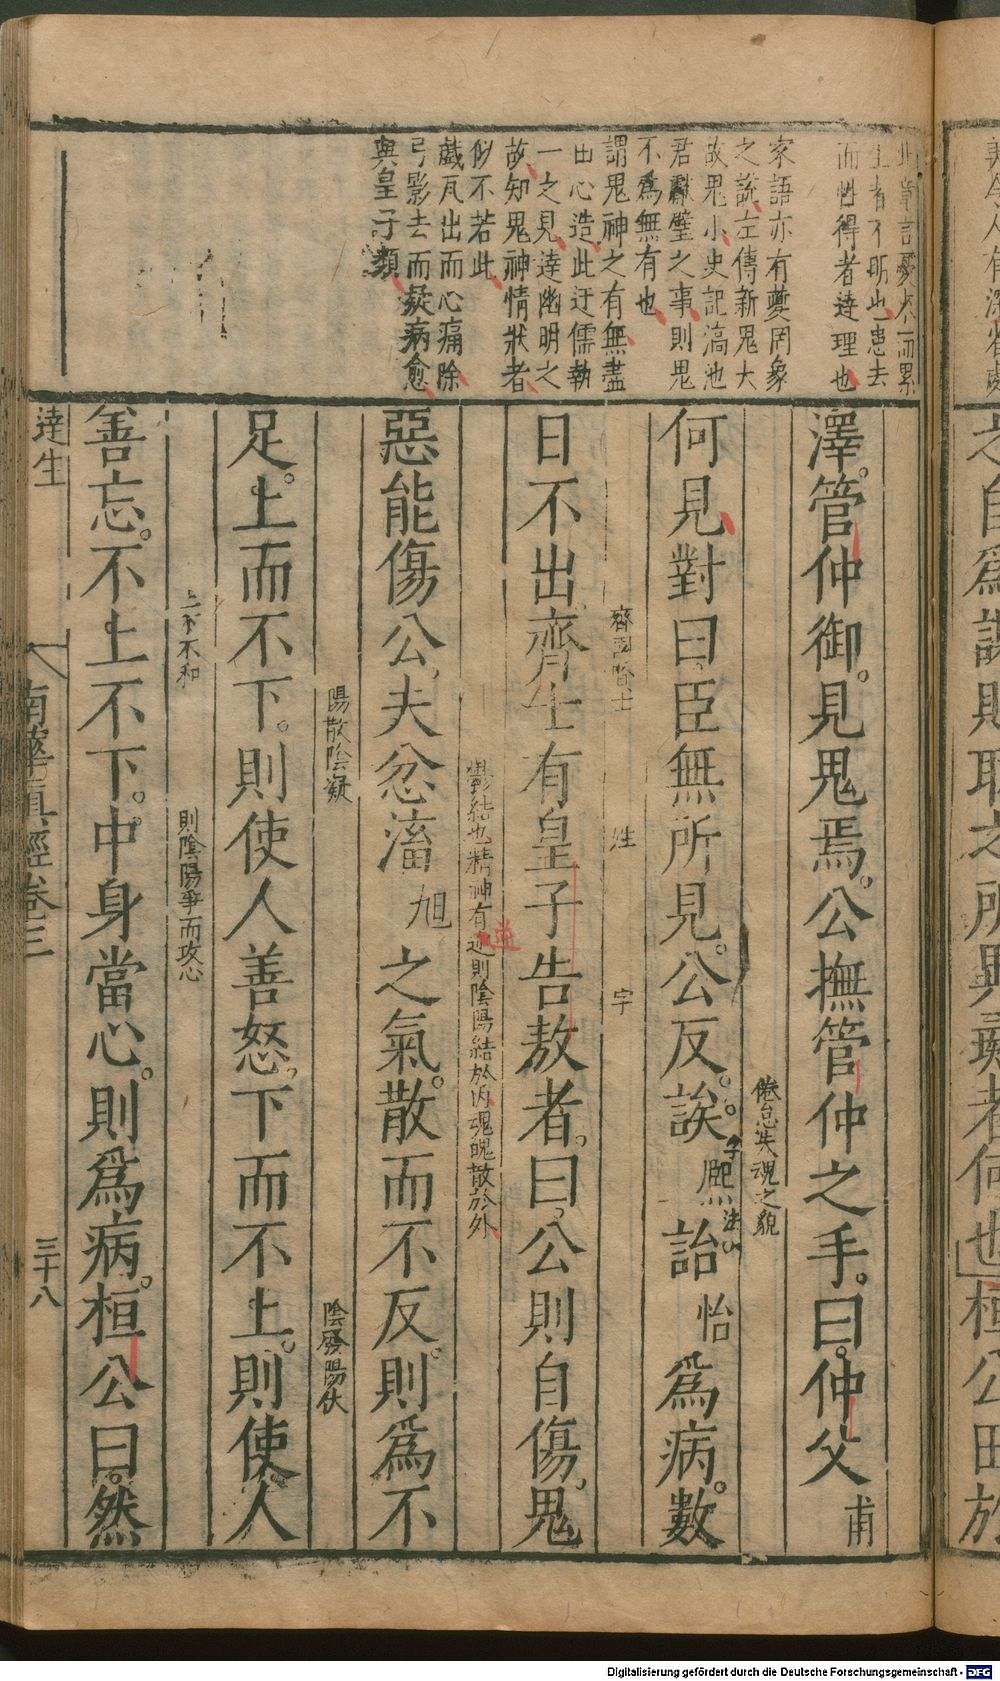 之自爲謀則取之所異彘者何也桓公田於
此章言憂不一而累
生者不明也患去
而性得者達理也
家語亦有夔罔象
之說左傳新鬼大
故鬼小史記滈池
君獻璧之事則鬼
不爲無有也
謂鬼神之有無盡
由心造此迂儒執
一之見達幽明之
故知鬼神情狀者
似不若此
戲瓦出而心痛除
弓影去而疑病愈
與皇子類
澤管仲御見鬼焉公撫管仲之手曰仲父甫
倦怠失魂之貌
何見對曰臣無所見公反誒熙詒怡爲病數
齊國賢士 姓 字
日不出齊士有皇子告敖者曰公則自傷鬼
鬱結也精神有逆則陰陽結於內魂魄散於外
逆
惡能傷公夫忿滀旭之氣散而不反則爲不
陽散陰凝 陰發陽伏
足上而不下則使人善怒下而不上則使人
上下不和 則陰陽爭而攻心
善忘不上不下中身當心則爲病桓公曰然
達生 南華真經卷三 三十八
Digitalisierung gefördert durch die Deutsche Forschungsgemeinschaft - DFG